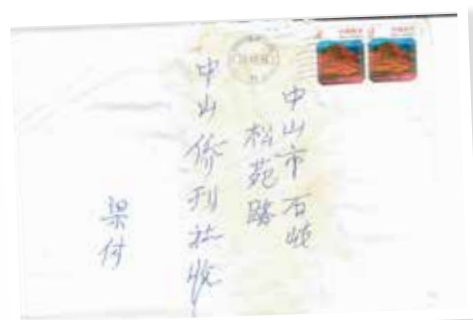 中山市石岐
松苑路
中山侨刊社收
梁付